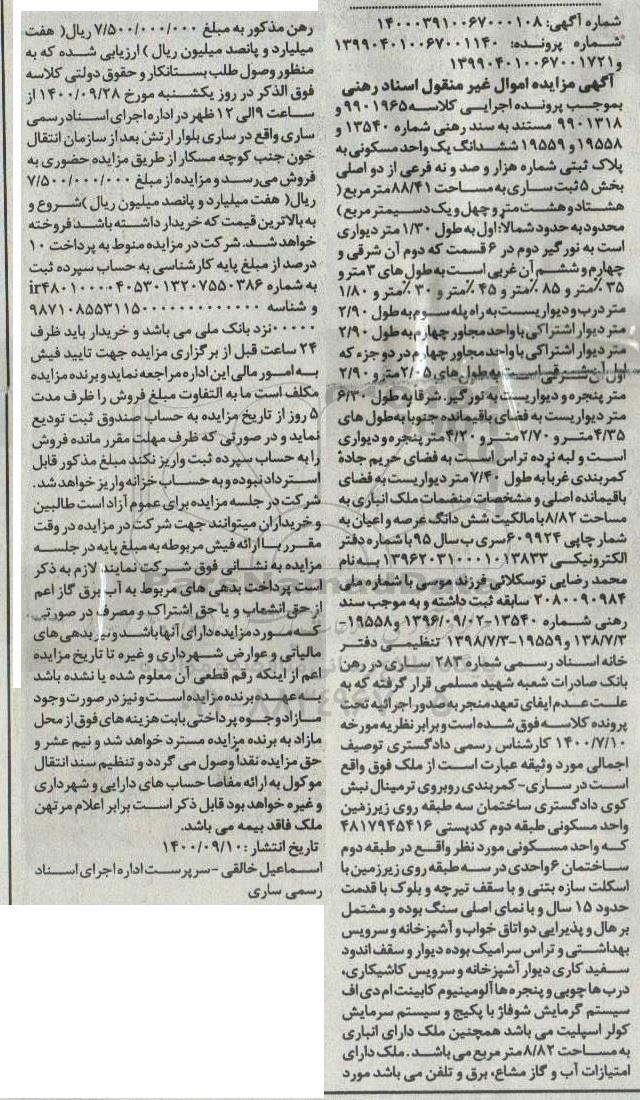 شماره آگهی: ۱۴۰۰۰۳۹۱۰۰۶۷۰۰۰۱۰۸
شماره پرونده: ۱۳۹۹۰۴۰۱۰۰۶۷۰۰۱۱۴۰
و ۱۳۹۹۰۴۰۱۰۰۶۷۰۰۱۷۲۱
آگهی مزایده اموال غیر منقول اسناد رهنی
بموجب پرونده اجرایی کلاسه ۹۹۰۱۹۶۵ و
۹۹۰۱۳۱۸ مستند به سند رهنی شماره ۱۳۵۴۰ و
۱۹۵۵۸ و ۱۹۵۵۹ ششدانگ یک واحد مسکونی به
پلاک ثبتی شماره هزار و صد و نه فرعی از دو اصلی
بخش ۵ ثبت ساری به مساحت ۸۸/۴۱ متر مربع (
هشتاد و هشت متر و چهل و یک دسیمتر مربع )
محدود به حدود شمالا: اول به طول ۱/۳۰ متر دیواری
است به نورگیر دوم در ۶ قسمت که دوم آن شرقی و
چهارم و ششم آن غربی است به طول های ۳ متر و
۳۵ ٪متر و ۸۵ ٪متر و ۴۵ ٪متر و ۳۰ ٪متر و ۱/۸۰
متر درب و دیواریست به راه پله سوم به طول ۲/۹۰
متر دیوار اشتراکی با واحد مجاور چهارم به طول ۲/۹۰
متر دیوار اشتراکی با واحد مجاور چهارم در دو جزء که
اول آن شرقی است به طول های ۲/۰۵ متر و ۲/۹۰
متر پنجره و دیواریست به نورگیر. شرقا به طول ۶/۳۰
متر دیواریست به فضای باقیمانده جنوبا به طول های
۴/۳۵ متر و ۲/۷۰ متر و ۴/۲۰ متر پنجره و دیواری
است و لبه نرده تراس است به فضای حریم جاده
کمربندی غربا به طول ۷/۴۰ متر دیواریست به فضای
باقیمانده اصلی و مشخصات منضمات ملک انباری به
مساحت ۸/۸۲ با مالکیت شش دانگ عرصه و اعیان به
شمار چاپی ۶۰۹۹۲۴ سری ب سال ۹۵ با شماره دفتر
الکترونیکی ۱۳۹۶۲۰۳۱۰۰۰۱۰۱۳۸۳۳ به نام
محمد رضایی توسکلائی فرزند موسی با شماره ملی
۲۰۸۰۰۹۰۹۸۴ سابقه ثبت داشته و به موجب سند
رهنی شماره ۱۳۵۴۰-۱۳۹۶/۰۹/۰۲ و ۱۹۵۵۸-
۱۳۸/۷/۳ و ۱۹۵۵۹-۱۳۹۸/۷/۳ تنظیمی دفتر
خانه اسناد رسمی شماره ۲۸۳ ساری در رهن
بانک صادرات شعبه شهید مسلمی قرار گرفته که به
علت عدم ایفای تعهد منجر به صدور اجرائیه تحت
پرونده کلاسه فوق شده است و برابر نظریه مورخه
۱۴۰۰/۷/۱۰ کارشناس رسمی دادگستری توصیف
اجمالی مورد وثیقه عبارت است از ملک فوق واقع
است در ساری- کمربندی روبروی ترمینال نبش
کوی دادگستری ساختمان سه طبقه روی زیرزمین
واحد مسکونی طبقه دوم کدپستی ۴۸۱۷۹۴۵۴۱۶
که واحد مسکونی مورد نظر واقع در طبقه دوم
ساختمان ۶ واحدی در سه طبقه روی زیرزمین با
اسکلت سازه بتنی و با سقف تیرچه و بلوک با قدمت
حدود ۱۵ سال و با نمای اصلی سنگ بوده و مشتمل
بر هال و پذیرایی دو اتاق خواب و آشپزخانه و سرویس
بهداشتی و تراس سرامیک بوده دیوار و سقف اندود
سفید کاری دیوار آشپزخانه و سرویس کاشیکاری،
درب ها چوبی و پنجره ها آلومینیوم کابینت ام دی اف
سیستم گرمایش شوفاژ با پکیج و سیستم سرمایش
کولر اسپلیت می باشد همچنین ملک دارای انباری
به مساحت ۸/۸۲ متر مربع می باشد. ملک دارای
امتیازات آب و گاز مشاع، برق و تلفن می باشد مورد
رهن مذکور به مبلغ ۷/۵۰۰/۰۰۰/۰۰۰ ریال( هفت
میلیارد و پانصد میلیون ریال ) ارزیابی شده که به
منظور وصول طلب بستانکار و حقوق دولتی کلاسه
فوق الذکر در روز یکشنبه مورخ ۱۴۰۰/۰۹/۲۸ از
ساعت ۹ الی ۱۲ ظهر در اداره اجرای اسناد رسمی
ساری واقع در ساری بلوار ارتش بعد از سازمان انتقال
خون جنب کوچه مسکار از طریق مزایده حضوری به
فروش می رسد و مزایده از مبلغ ۷/۵۰۰/۰۰۰/۰۰۰
ریال( هفت میلیارد و پانصد میلیون ریال )شروع و
به بالاترین قیمت که خریدار داشته باشد فروخته
خواهد شد. شرکت در مزایده منوط به پرداخت ۱۰
درصد از مبلغ پایه کارشناسی به حساب سپرده ثبت
به شماره ir۴۸۰۱۰۰۰۰۴۰۵۳۰۱۳۲۰۷۵۵۰۳۸۶
و شناسه ۹۸۷۱۰۸۵۵۳۱۱۵۰۰۰۰۰۰۰۰۰۰۰۰۰
۰۰۰۰۰ نزد بانک ملی می باشد و خریدار باید ظرف
۲۴ ساعت قبل از برگزاری مزایده جهت تایید فیش
به امور مالی این اداره مراجعه نماید و برنده مزایده
مکلف است ما به التفاوت مبلغ فروش را ظرف مدت
۵ روز از تاریخ مزایده به حساب صندوق ثبت تودیع
نماید و در صورتی که ظرف مهلت مقرر مانده فروش
را به حساب سپرده ثبت واریز نکند مبلغ مذکور قابل
استرداد نبوده و به حساب خزانه واریز خواهد شد.
شرکت در جلسه مزایده برای عموم آزاد است طالبین
و خریداران میتوانند جهت شرکت در مزایده در وقت
مقرر با ارائه فیش مربوطه به مبلغ پایه در جلسه
مزایده به نشانی فوق شرکت نمایند لازم به ذکر
است پرداخت بدهی های مربوط به آب برق گاز اعم
از حق انشعاب و یا حق اشتراک و مصرف در صورتی
که مورد مزایده دارای آنها باشد و نیز بدهی های
مالیاتی و عوارض شهرداری و غیره تا تاریخ مزایده
اعم از اینکه رقم قطعی آن معلوم شده یا نشده باشد
به عهده برنده مزایده است و نیز در صورت وجود
مازاد وجوه پرداختی بابت هزینه های فوق از محل
مازاد به برنده مزایده مسترد خواهد شد و نیم عشر و
حق مزایده نقدا وصول می گردد و تنظیم سند انتقال
موکول به ارائه مفاصا حساب های دارایی و شهرداری
و غیره خواهد بود قابل ذکر است برابر اعلام مرتهن
ملک فاقد بیمه می باشد.
تاریخ انتشار: ۱۴۰۰/۰۹/۱۰
اسماعیل خالقی - سرپرست اداره اجرای اسناد
رسمی ساری